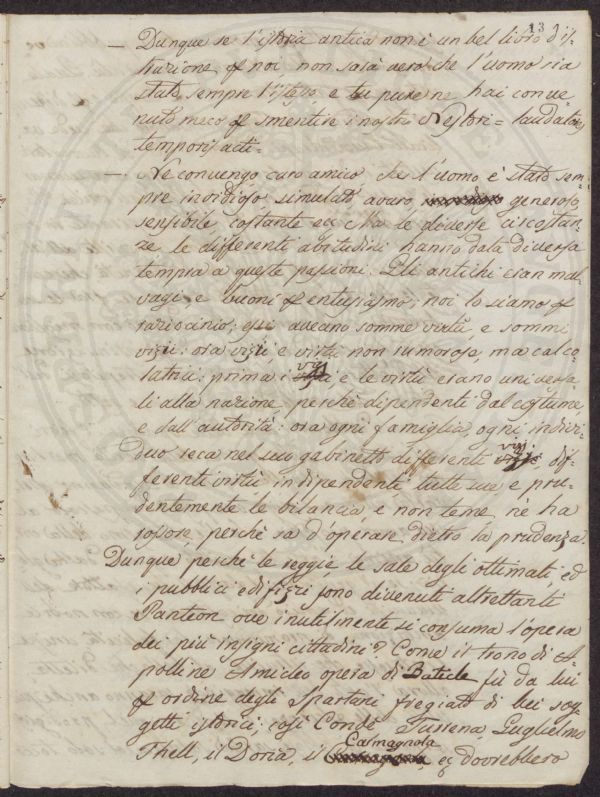 13
— Dunque se l'istoria antica non è un bel libro d'is-
truzione p noi, non sarà vero che l'uomo sia
stato sempre l'istesso, e tu pure ne hai conve-
nuto meco p smentire i nostri Nestori-laudatores
temporis acti-
—. Ne convengo caro amico che l'uomo è stato sem-
pre invidioso simulato avaro, generoso,
sensibile, costante ec. Ma le diverse circostan-
ze le differenti abitudini hanno data diversa
tempra a queste passioni. Gli antichi eran mal-
vagi, e buoni p entusiasmo; noi lo siamo p
raziocinio; essi aveano somme virtù, e sommi
vizii: ora vizii, e virtù non rumorose, ma calco-
latrici: prima i vizj e le virtù erano universa-
li alla nazione, perchè dipendenti dal costume,
e dall'autorità: ora ogni famiglia, ogni indivi-
duo reca nel suo gabinetto differenti vizj, dif-
ferenti virtù indipendenti tutte sue e pru-
dentemente le bilancia e non teme, nè ha
rossore, perchè sa d'operare dietro la prudenza.
Dunque perchè le reggie, le sale degli ottimati, ed
i pubblici edifizi sono divenuti altrettanti
Panteon ove inutilmente si consuma l'opera
dei più insigni cittadini? Come il trono di A-
polline Amicleo opera di Baticle fù da lui
p ordine degli Spartani fregiato di bei sog-
getti istorici; così Condè Turrena, Guglielmo
Thell, il Doria, il Carmagnola, ec dovrebbero